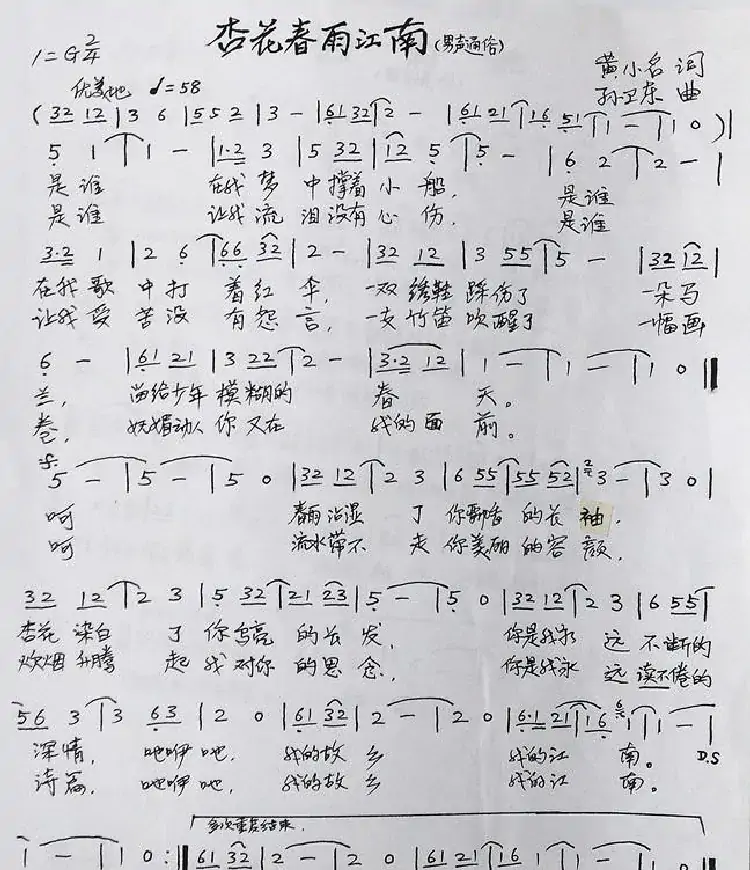 杏花春雨江南(男声通俗)
1=G 2/4
黄小名 词
优美地 ♩=58
孙卫东 曲
(32 12|3 6|55 2|3 -|61 32|2 -|61 21|16 51|1 -|1 0)|
5 1|1 -|1·2 3|5 32|12 5|5 -|6 2|2 -|
是谁 在我梦中撑着小船, 是谁
是谁 让我流泪没有心伤, 是谁
3·2 1|2 6|66 32|2 -|32 12|3 55|5 -|32 12|
在我歌中打着红伞, 一双绣鞋踩伤了 一朵马
让我受苦没有怨言, 一支竹笛吹醒了 一幅画
6 -|61 21|3 22|2 -|3·2 12|1 -|1 -|1 0‖
兰, 留给少年模糊的 春天。
卷, 妩媚动人你又在 我的面前。
5 -|5 -|5 0|32 12|2 3|6 55|55 52|3 -|3 0|
呵 春雨沾湿了你飘香的长袖,
呵 流水带不走你美丽的容颜,
32 12|2 3|5 32|21 23|5 -|5 0|32 12|2 3|6 55|
杏花染白了你乌亮的长发, 你是我永远不断的
炊烟升腾起我对你的思念, 你是我永远读不倦的
56 3|3 63|2 0|61 32|2 -|2 0|6·1 21|16 1|1 -|
深情, 吔咿吔, 我的故乡 我的江南。 D.S
诗篇, 吔咿吔, 我的故乡 我的江南。
多次重复结束.
1 -|1 0:‖61 32|2 -|2 0|61 21|16 1|1 -|1 0‖